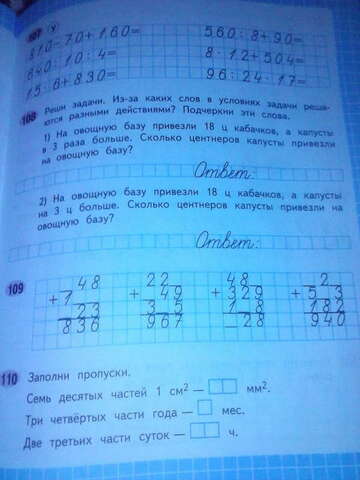 107
810-70+160=
560:8+90=
640:10:4=
8·12+504=
15·6+830=
96:24·17=
108 Реши задачи. Из-за каких слов в условиях задачи реша-
ются разными действиями? Подчеркни эти слова.
1) На овощную базу привезли 18 ц кабачков, а капусты
в 3 раза больше. Сколько центнеров капусты привезли
на овощную базу?
Ответ:
2) На овощную базу привезли 18 ц кабачков, а капусты
на 3 ц больше. Сколько центнеров капусты привезли на
овощную базу?
Ответ:
109
_48 22_ 48_ _2_
+ 1__ + _49 + 329 + 5_3
_23 3_5 1_8 182
836 967 _28 940
110 Заполни пропуски.
Семь десятых частей 1 см² — мм².
Три четвёртых части года — мес.
Две третьих части суток — ч.